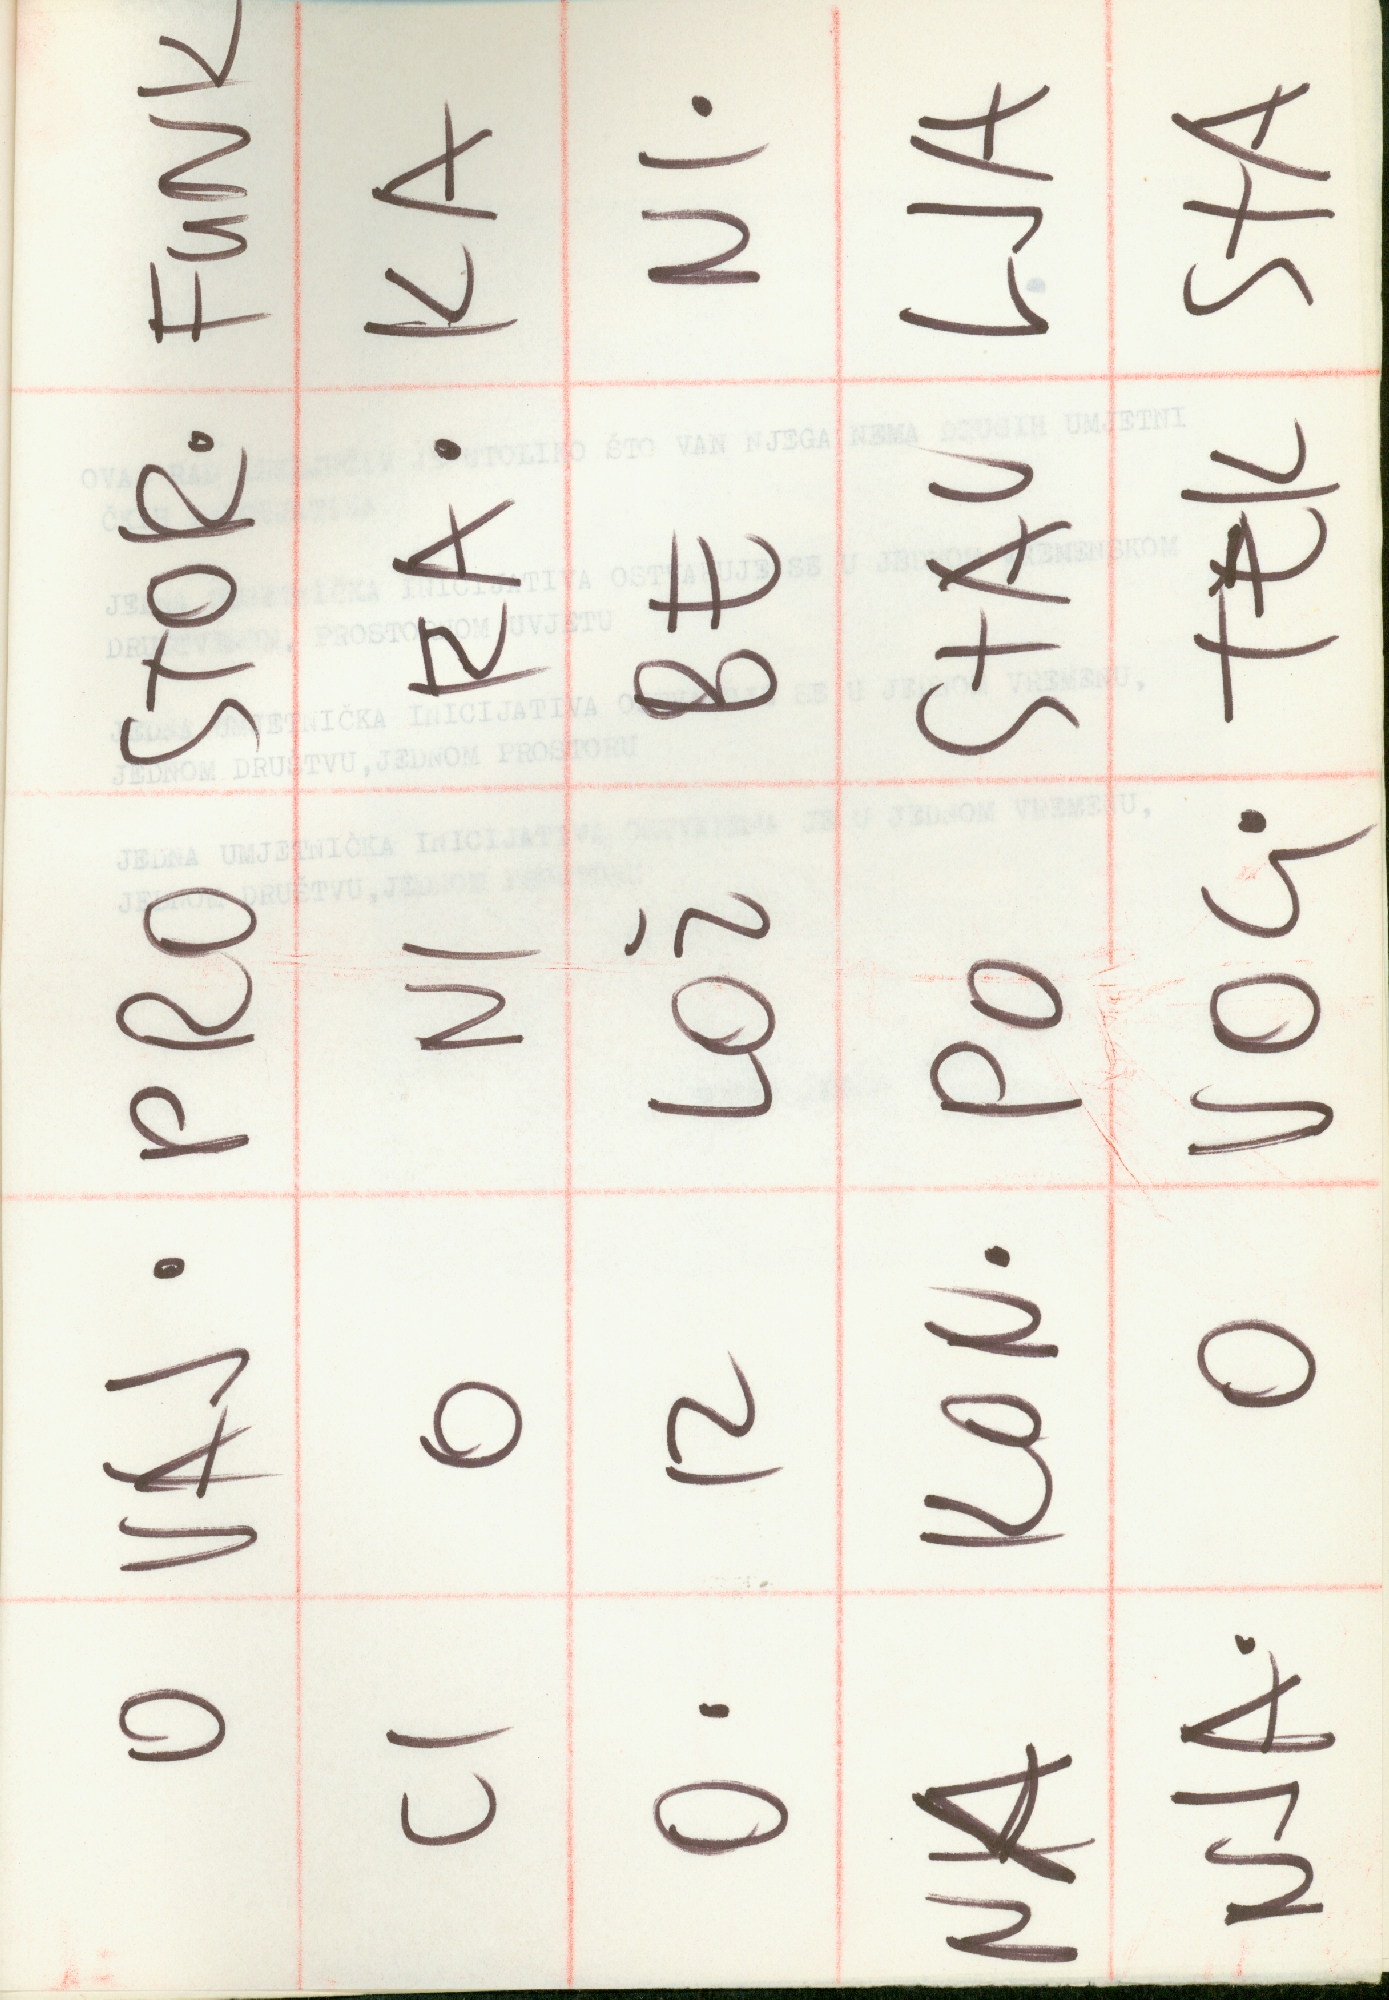 O VAJ. PRO STOR. FUNK
CI O NI RA. KA
O. IZ LOŽ BE NI.
NA KON. PO STAV LJA
NJA. O VOG. TEK STA
UTOLIKO ŠTO VAN NJEGA NEMA DRUGIH UMJETNI
INICIJATIVA OSTVARUJE SE U JEDNOM VREMENSKOM
PROSTORNOM UVJETU
JEDNA UMJETNIČKA INICIJATIVA SE U JEDNOM VREMENU,
JEDNOM DRUŠTVU,JEDNOM PROSTORU
JEDNA UMJETNIČKA INICIJATIVA JE U JEDNOM VREMENU,
JEDNOM DRUŠTVU,JEDNOM